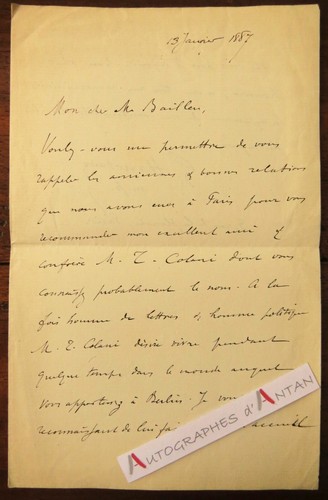 13 Janvier 1887
Mon cher Mr Bailleu,
Voulez-vous me permettre de vous
rappeler les anciennes & bonnes relations
que nous avons eues à Paris pour vous
recommander mon excellent ami &
confrère M. T. Colani dont vous
connaissez probablement le nom. A la
fois homme de lettres & homme politique
M. T. Colani désire vivre pendant
quelque temps dans le monde auquel
vous appartenez à Berlin. Je vous
reconnaissant de lui faire accueil
AUTOGRAPHES d'ANTAN